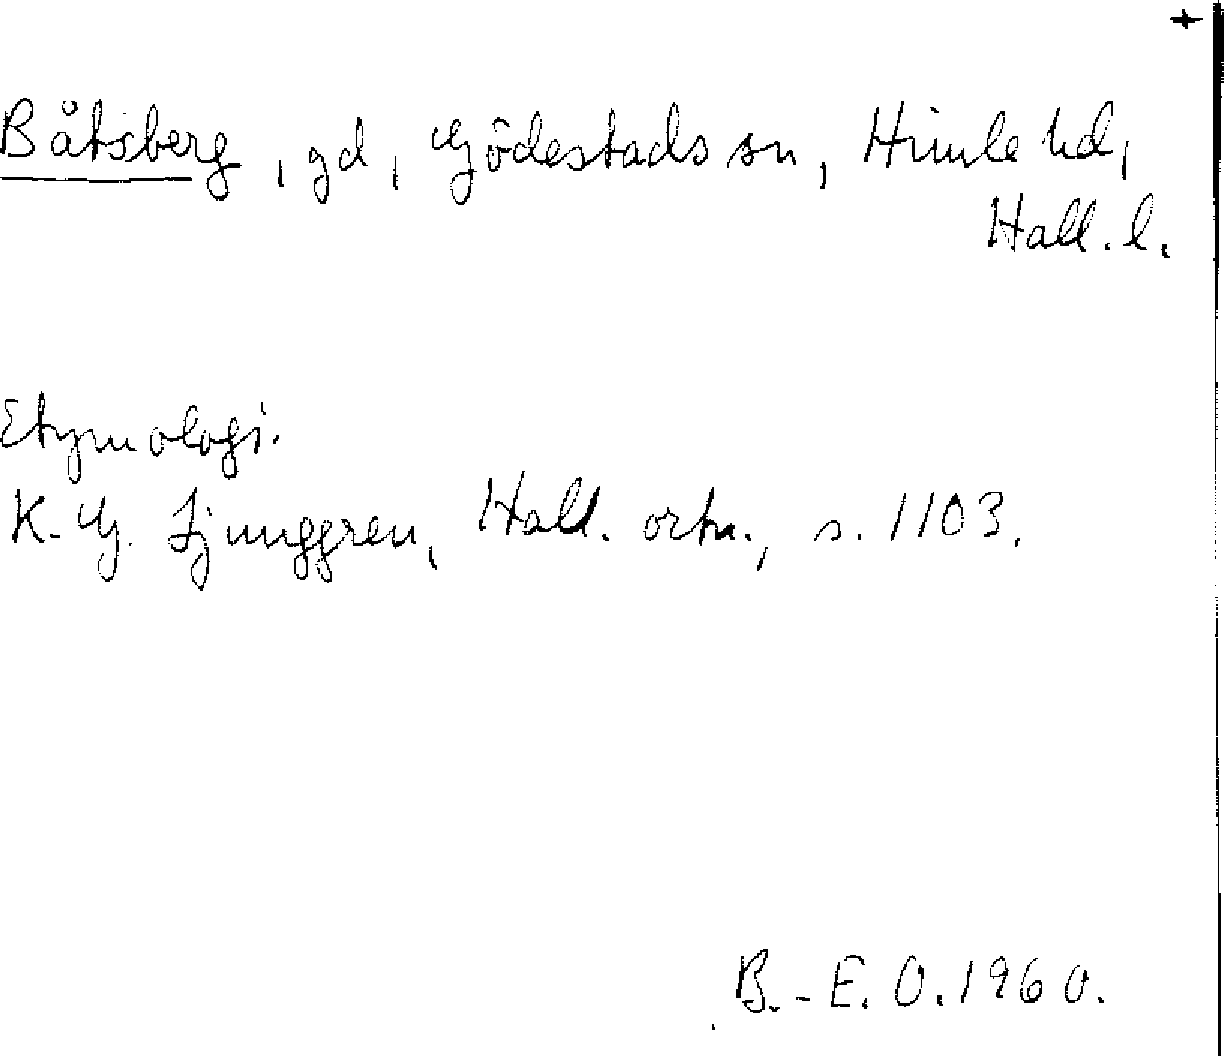 +
Båtsberg, gd, Gödestads sn, Himle hd,
Hall. l.
Etymologi.
K.-G. Ljunggren, Hall. ortn., s. 1103.
B.-E. O. 1960.